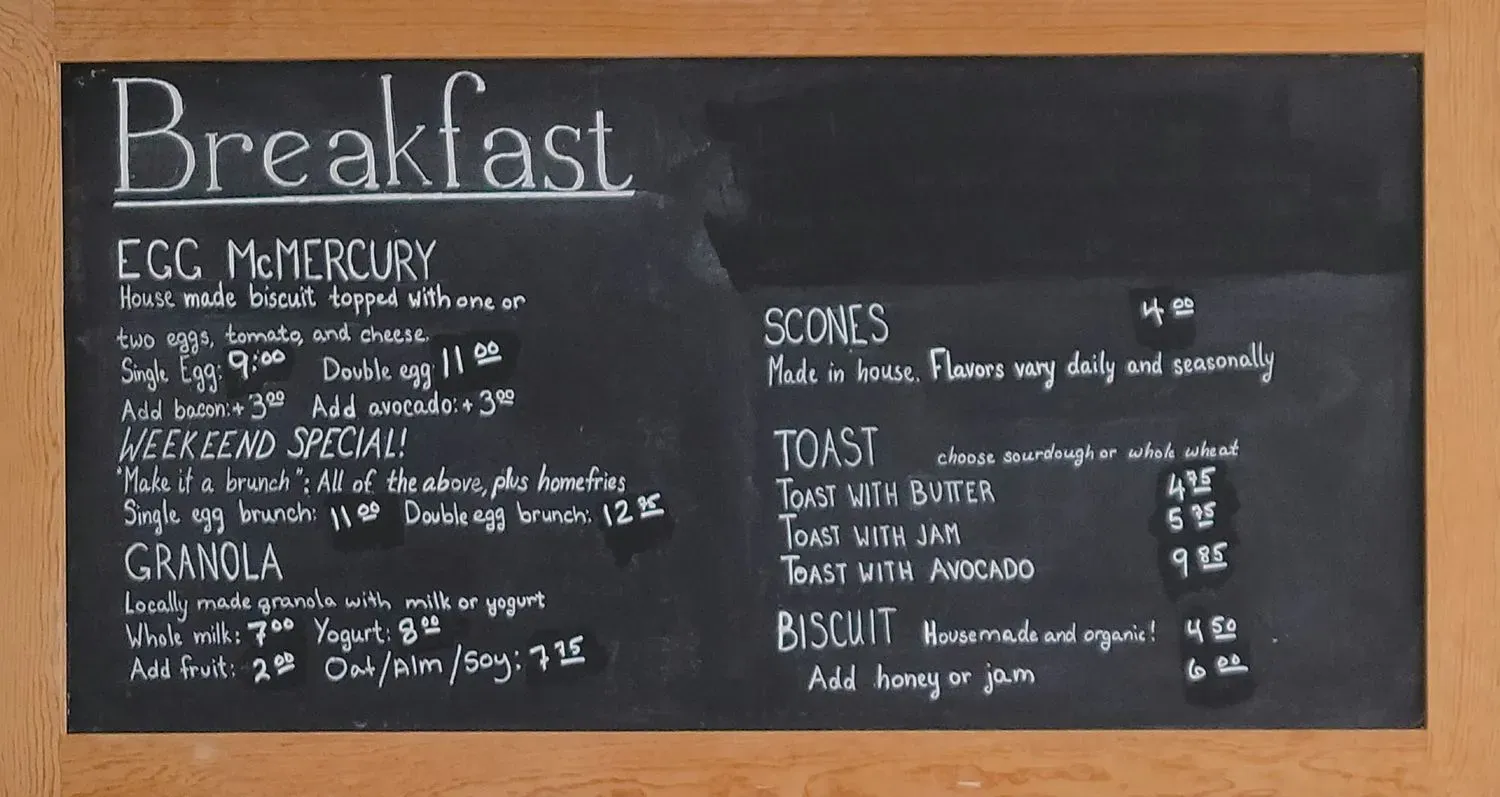 Breakfast
EGG McMERCURY
House made biscuit topped with one or
two eggs, tomato, and cheese.
Single Egg: 9:00 Double egg: 11 00
Add bacon:+ 3 00 Add avocado:+ 3 00
WEEKEEND SPECIAL!
"Make it a brunch": All of the above, plus homefries
Single egg brunch: 11 00 Double egg brunch: 12 95
GRANOLA
Locally made granola with milk or yogurt
Whole milk: 7 00 Yogurt: 8 00
Add fruit: 2 00 Oat/Alm/Soy: 7 75
SCONES 4 00
Made in house. Flavors vary daily and seasonally
TOAST choose sourdough or whole wheat
TOAST WITH BUTTER 4 75
TOAST WITH JAM 5 75
TOAST WITH AVOCADO 9 85
BISCUIT Housemade and organic! 4 50
Add honey or jam 6 00